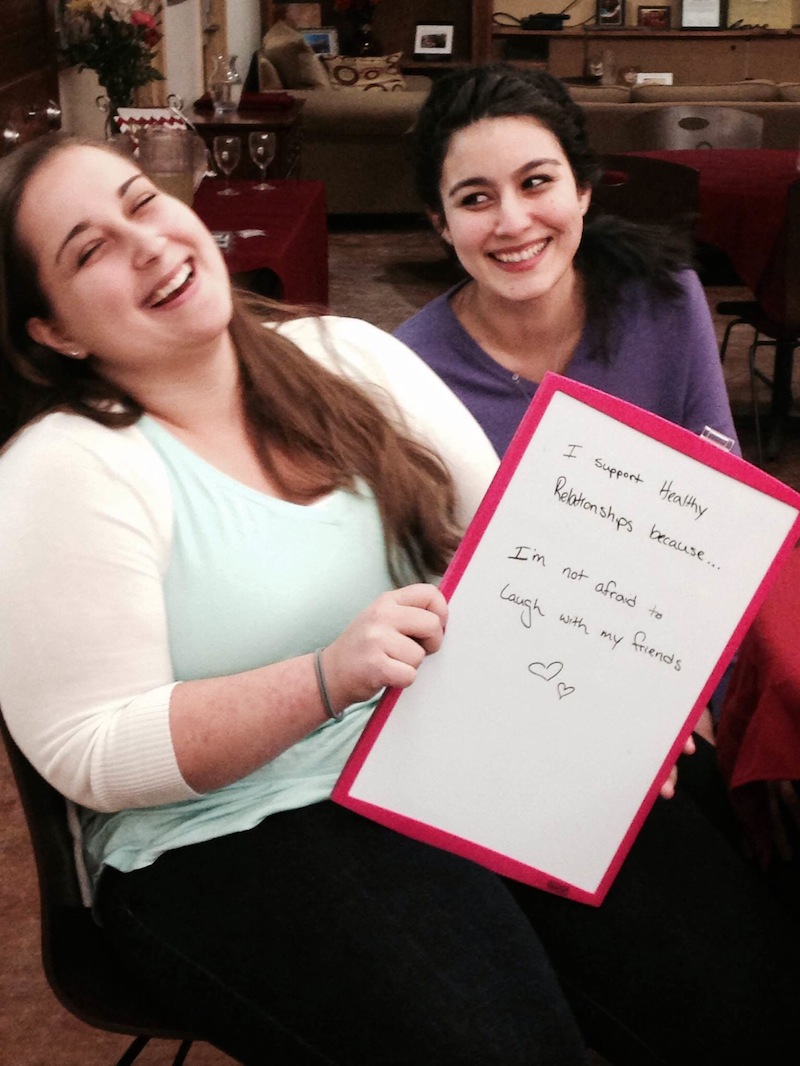 I support Healthy
Relationships because...
I'm not afraid to
Laugh with my friends